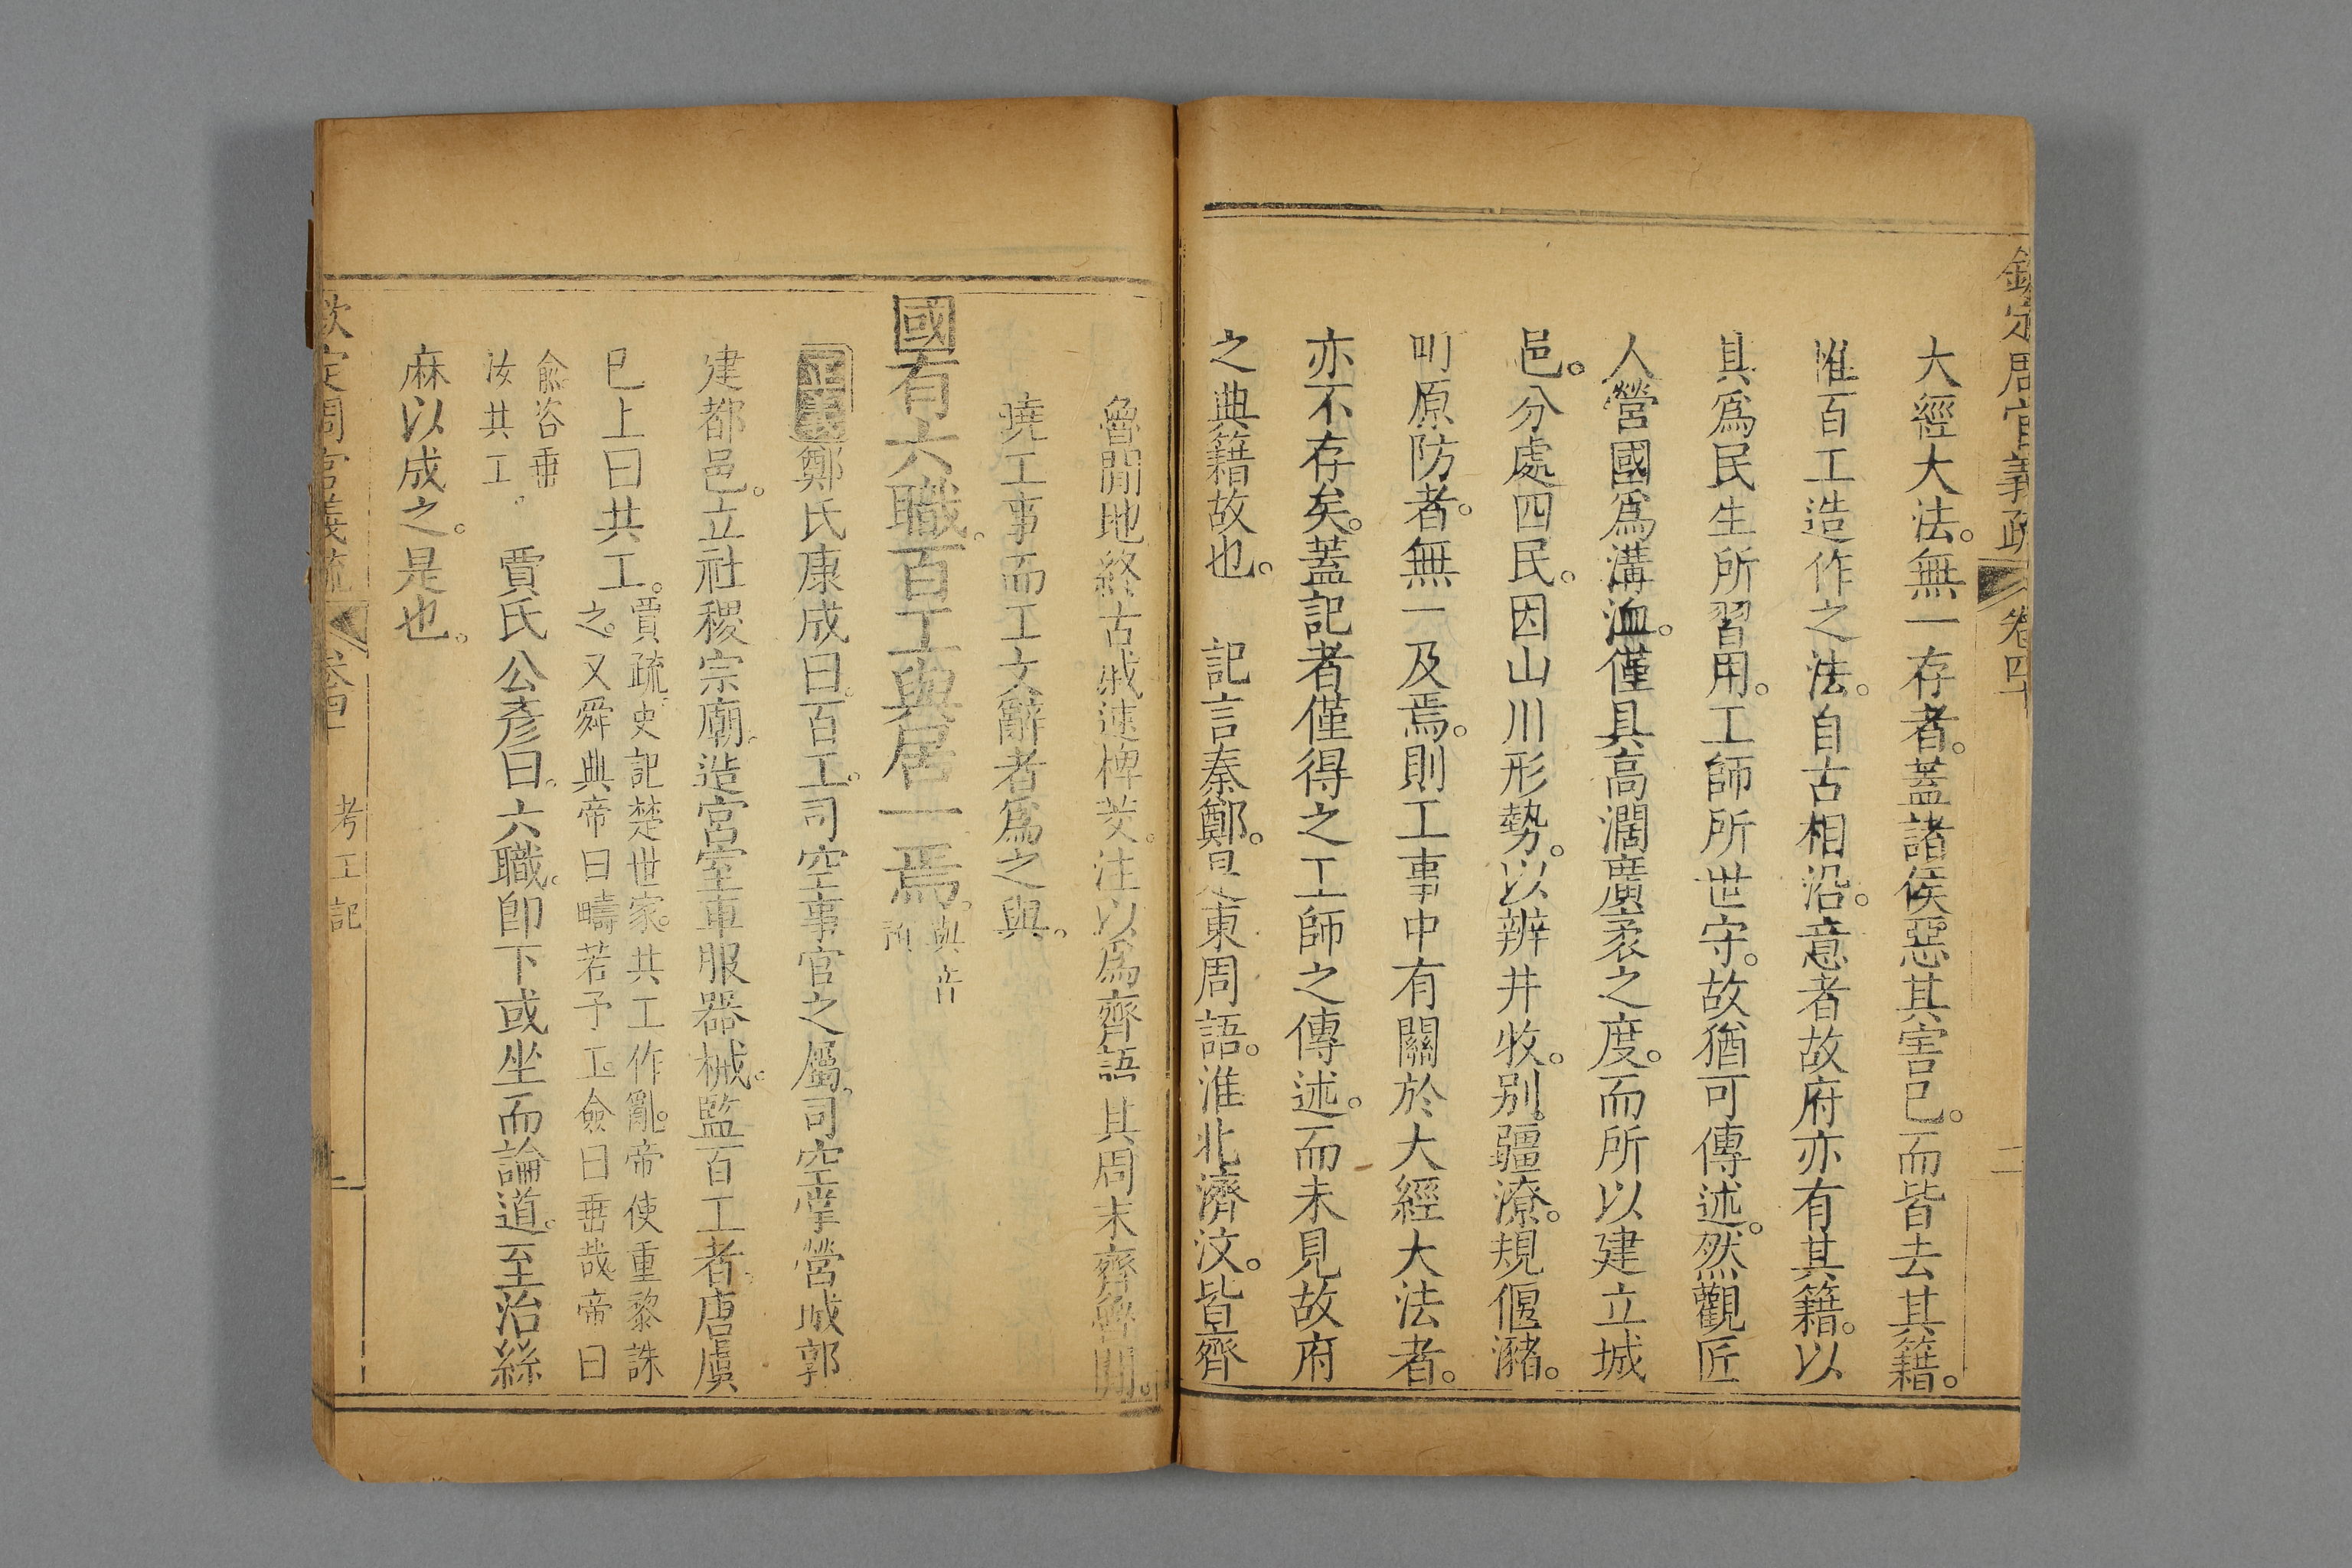 欽定周官義疏 卷四十 二
大經大法。無一存者。蓋諸侯惡其害已。而皆去其籍。
惟百工造作之法。自古相沿。意者故府亦有其籍。以
其爲民生所習用。工師所世守。故猶可傳述。然觀匠
人營國爲溝洫。僅具高濶廣袤之度。而所以建立城
邑。分處四民。因山川形勢。以辨井牧。别疆潦。規偃瀦。
町原防者。無一及焉。則工事中有關於大經大法者。
亦不存矣。蓋記者僅得之工師之傳述。而未見故府
之典籍故也。 記言秦鄭。是東周語。淮北濟汶。皆齊
魯間地終古戚速椑茭。注以爲齊語其周末齊魯間。
曉工事而工文辭者爲之與。
國有六職。百工與居一焉。與音
預
正義鄭氏康成曰。百工。司空事官之屬。司空掌營城郭
建都邑。立社稷宗廟。造宮室車服器械。監百工者。唐虞
已上曰共工。賈疏。史記楚世家。共工作亂。帝使重黎誅
之。又舜典帝曰疇若予工。僉曰垂哉。帝曰
兪咨垂
汝共工。 賈氏公彥曰。六職。卽下或坐而論道。至治絲
麻以成之。是也。
欽定周官義疏 卷四十 考工記 二